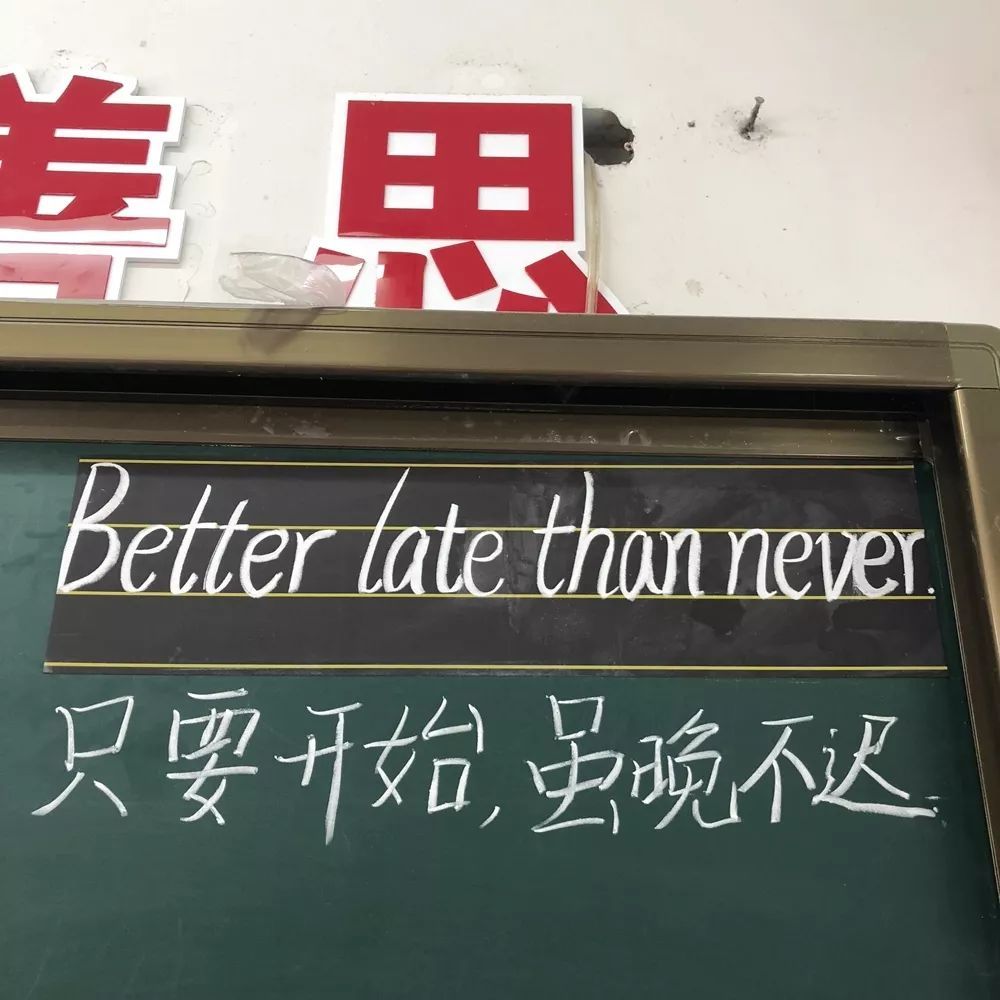 善思
Better late than never.
只要开始,虽晚不迟.